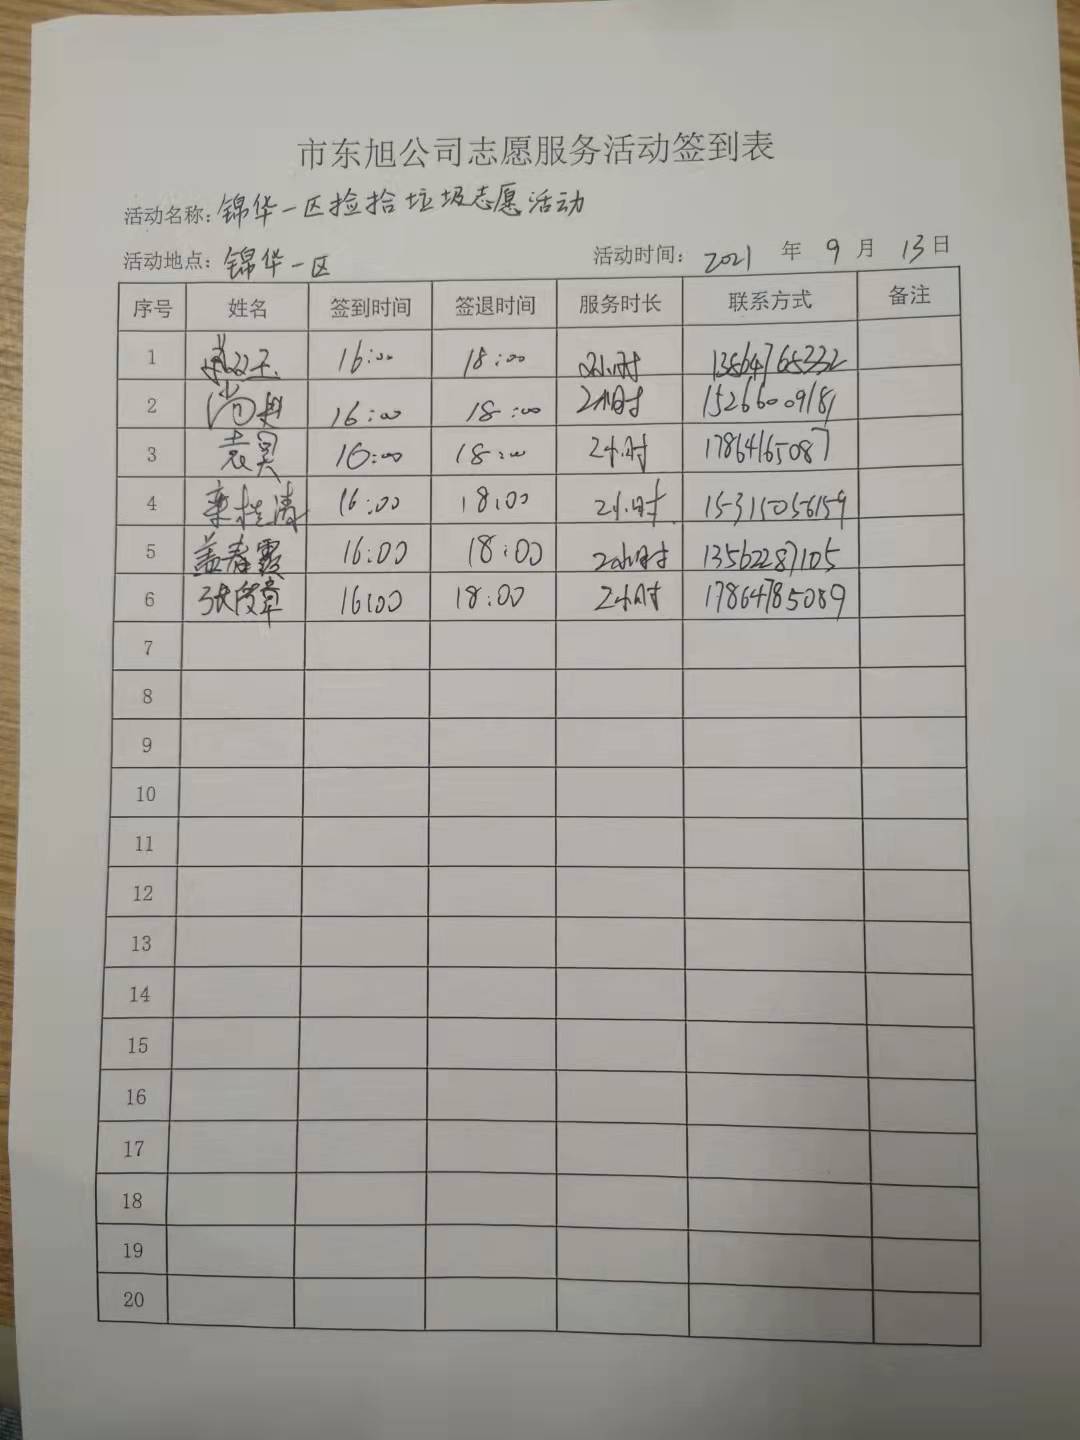 市东旭公司志愿服务活动签到表
活动名称：锦华一区捡拾垃圾志愿活动
活动地点：锦华一区 活动时间：2021 年 9 月 13 日
序号 姓名 签到时间 签退时间 服务时长 联系方式 备注
1 16:00 18:00 2小时 13564765332
2 尚 16:00 18:00 2小时 15266009181
3 袁昊 16:00 18:00 2小时 17864165087
4 栾桂清 16:00 18:00 2小时 153115056159
5 盖春霞 16:00 18:00 2小时 13562287105
6 张俊章 16:00 18:00 2小时 17864785089
7
8
9
10
11
12
13
14
15
16
17
18
19
20